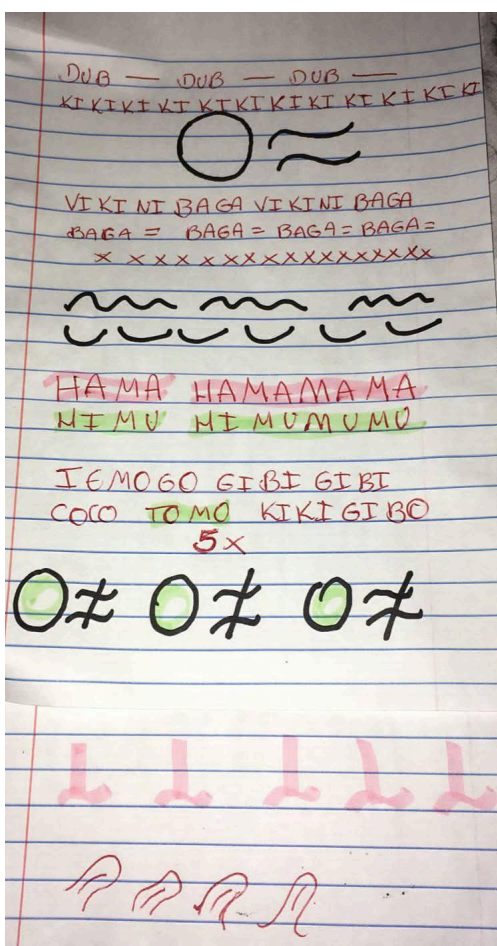 DUB — DUB — DUB —
KI KI KI KI KI KI KI KI KI KI KI KI
VIKINI BAGA VIKINI BAGA
BAGA = BAGA = BAGA = BAGA =
x x x x x x x x x x x x x x x x x
HAMA HAMAMAMA
MIMU MIMUMUMU
IEMOGO GIBI GIBI
COCO TOMO KIKI GIBO
5x
O≠ O≠ O≠